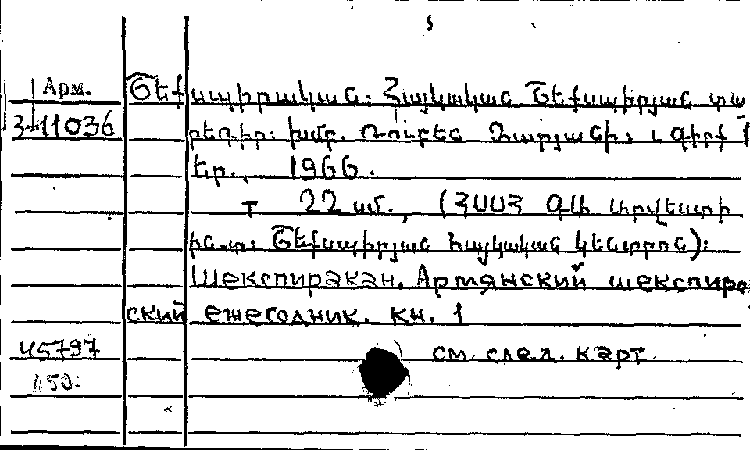 Арм. Շեքսպիրական: Հայկական Շեքսպիրյան տա
3-11036 րեգիրք: խմբ. Ռուբեն Զարյանի: Գիրք 1
Եր., 1966.
т 22 սմ., (ՀՍՍՀ ԳԱ Արվեստի
ին-տ: Շեքսպիրյան հայկական կենտրոն):
Шекспиракан. Армянский шекспиров
ский ежегодник. кн. 1
45797 см. след. карт.
150: